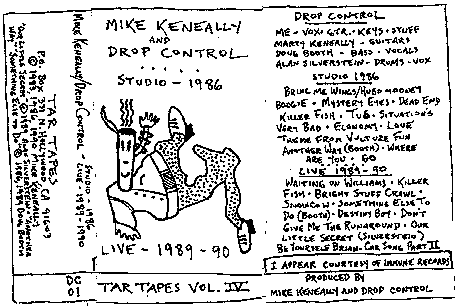 MIKE KENEALLY
AND
DROP CONTROL
STUDIO - 1986
LIVE - 1989 - 90
TAR TAPES VOL. IV
DC
01
MIKE KENEALLY/DROP CONTROL - STUDIO - 1986
LIVE - 1989-1990
TAR TAPES
DROP CONTROL
ME - VOX, GTR., KEYS, STUFF
MARTY KENEALLY - GUITARS
DOUG BOOTH - BASS, VOCALS
ALAN SILVERSTEIN - DRUMS, VOX
STUDIO 1986
BRING ME WINGS/HUBO MOONEY
BOOGIE • MYSTERY EYES • DEAD END
KILLER FISH • TUG • SITUATION'S
VERY BAD • ECONOMY • LOVE
THEME FROM VULTURE FUN
ANOTHER WAY (BOOTH) • WHERE
ARE YOU • GO
LIVE 1989-90
WAITING ON WILLIAMS • KILLER
FISH • BRIGHT STUFF CRAWL •
SNOWCOW • SOMETHING ELSE TO
DO (BOOTH) • DESTINY BOY • DON'T
GIVE ME THE RUNAROUND • OUR
LITTLE SECRET (SILVERSTEIN)
BE YOURSELF BRIAN • CAR SONG PART II
I APPEAR COURTESY OF IMMUNE RECORDS
PRODUCED BY
MIKE KENEALLY AND DROP CONTROL